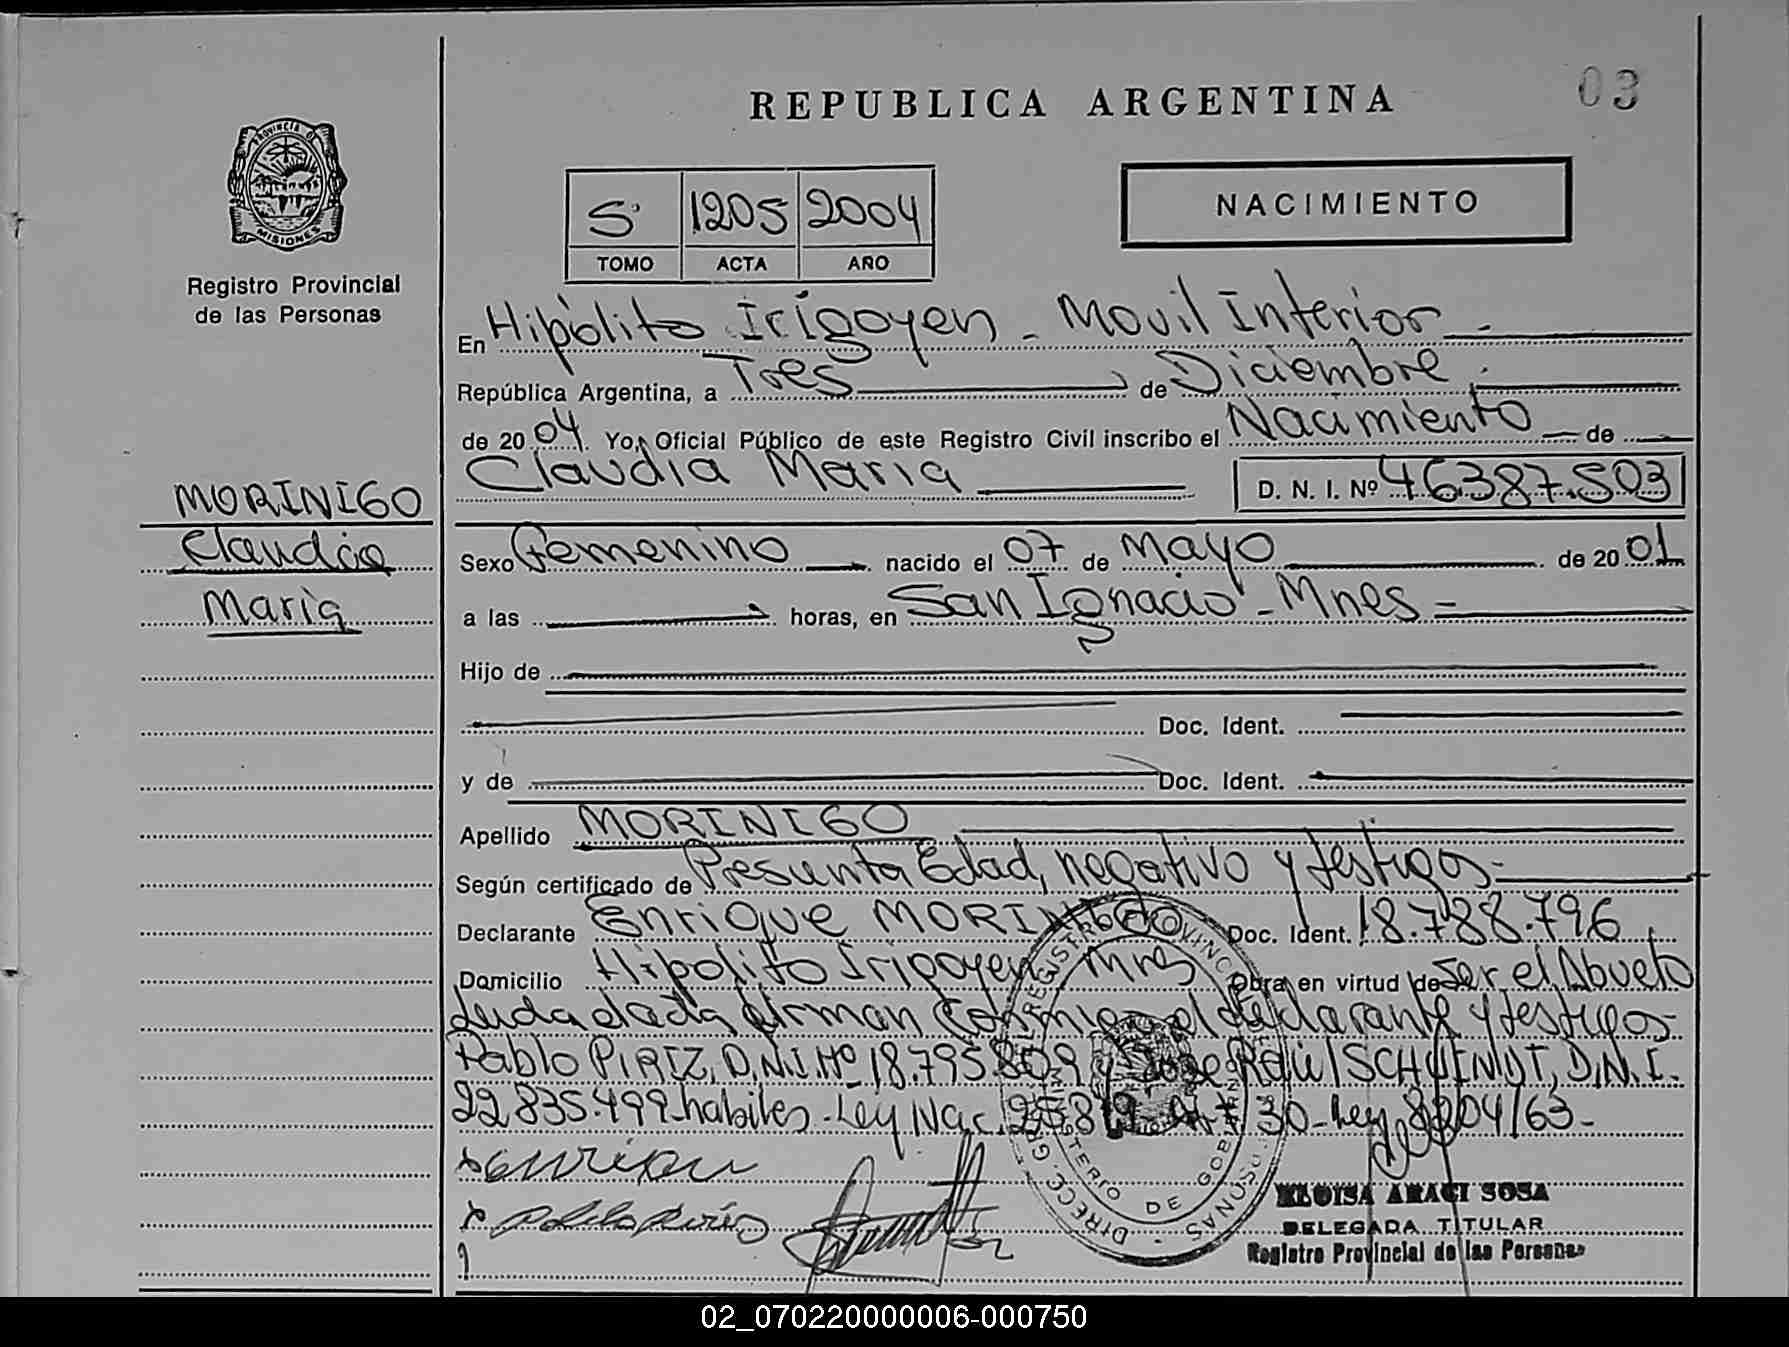 REPUBLICA ARGENTINA
03
PROVINCIA DE
MISIONES
Registro Provincial
de las Personas
S' 1205 2004
TOMO ACTA AÑO
NACIMIENTO
En Hipólito Irigoyen - Movil Interior
República Argentina, a Tres de Diciembre
de 2004. Yo, Oficial Público de este Registro Civil inscribo el Nacimiento de
Claudia Maria D. N. I. Nº 46.387.503
MORINIGO
Claudia
Maria
Sexo Femenino nacido el 07 de Mayo de 2001
a las horas, en San Ignacio - Mnes -
Hijo de
Doc. Ident.
y de Doc. Ident.
Apellido MORINIGO
Según certificado de Presunta Edad, negativo y testigos -
Declarante Enrique MORINIGO Doc. Ident. 18.788.796
Domicilio Hipólito Irigoyen Mnes Obra en virtud de Ser el Abuelo
Leida el acta, firman conmigo el declarante y testigos
Pablo PIRIZ, D.N.I. Nº 18.795.809 y Jose Raúl SCHUINDT, D.N.I.
22.835.499 - habiles - Ley Nac. 25.819 Art 30 - Ley 8204/63 -
ELOISA ARACI SOSA
DELEGADA TITULAR
Registro Provincial de las Personas
02_070220000006-000750